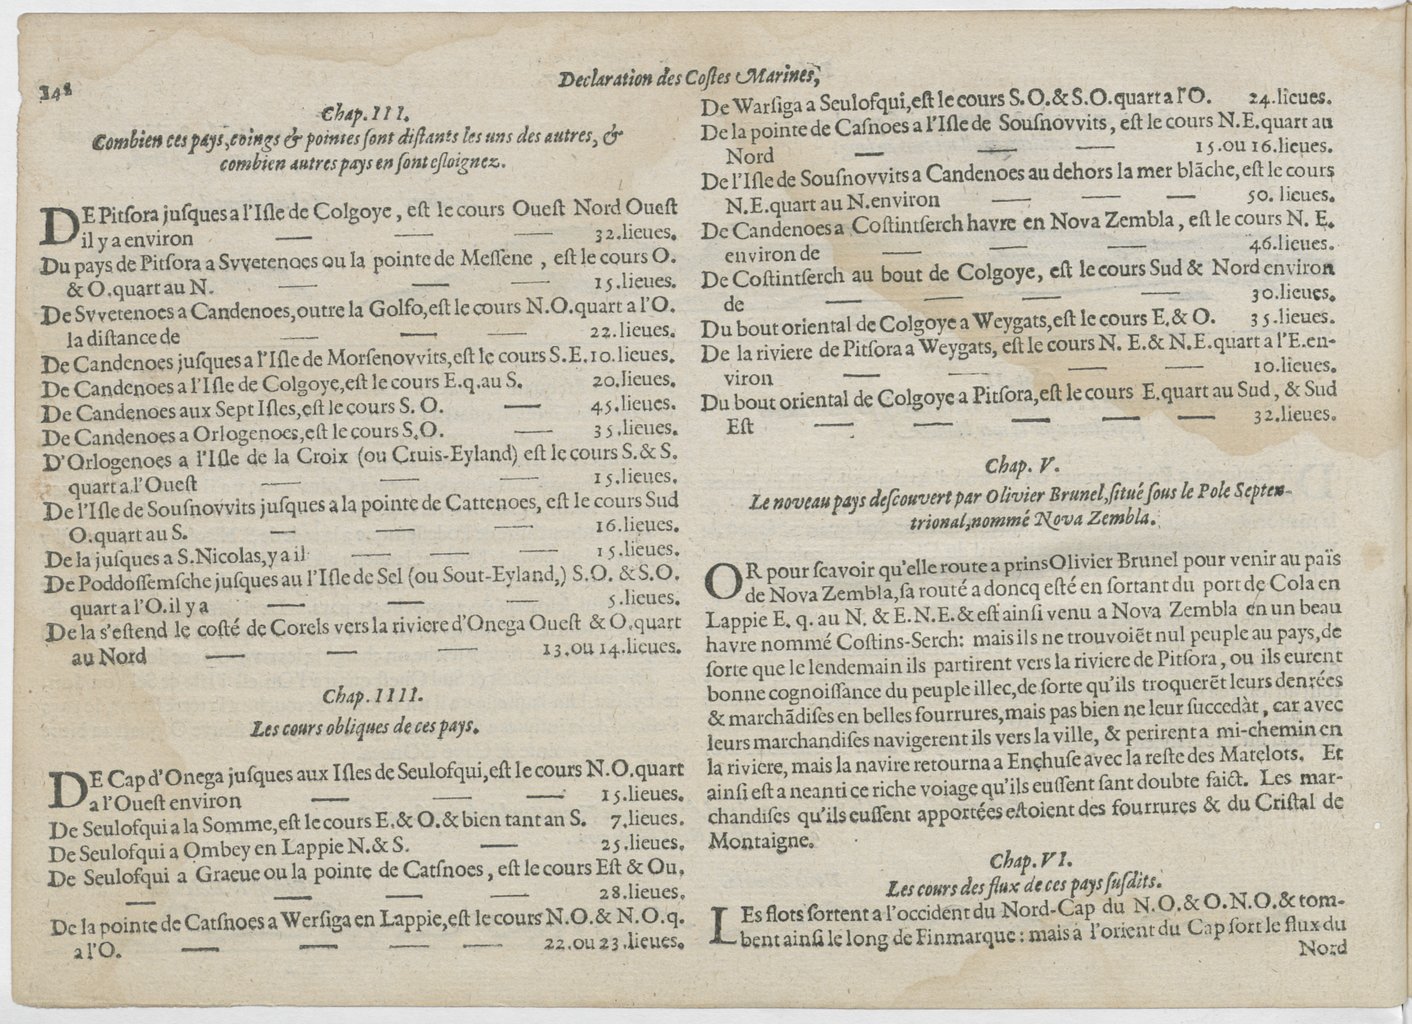 348
Declaration des Costes Marines,
Chap. III.
Combien ces pays, coings & pointes sont distants les uns des autres, &
combien autres pays en sont esloignez.
DE Pitsora jusques a l'Isle de Colgoye, est le cours Ouest Nord Ouest
il y a environ — — — 32. lieues.
Du pays de Pitsora a Svvetenoes ou la pointe de Messene, est le cours O.
& O. quart au N. — — — 15. lieues.
De Svvetenoes a Candenoes, outre la Golfo, est le cours N.O. quart a l'O.
la distance de — — — 22. lieues.
De Candenoes jusques a l'Isle de Morsenovvits, est le cours S.E. 10. lieues.
De Candenoes a l'Isle de Colgoye, est le cours E.q. au S. 20. lieues.
De Candenoes aux Sept Isles, est le cours S. O. — 45. lieues.
De Candenoes a Orlogenoes, est le cours S.O. — 35. lieues.
D'Orlogenoes a l'Isle de la Croix (ou Cruis-Eyland) est le cours S. & S.
quart a l'Ouest — — — 15. lieues.
De l'Isle de Sousnovvits jusques a la pointe de Cattenoes, est le cours Sud
O. quart au S. — — — 16. lieues.
De la jusques a S. Nicolas, y a il — — — 15. lieues.
De Poddossemsche jusques au l'Isle de Sel (ou Sout-Eyland,) S.O. & S.O.
quart a l'O. il y a — — — 5. lieues.
De la s'estend le costé de Corels vers la riviere d'Onega Ouest & O. quart
au Nord — — — 13. ou 14. lieues.
Chap. IIII.
Les cours obliques de ces pays.
DE Cap d'Onega jusques aux Isles de Seulofqui, est le cours N.O. quart
a l'Ouest environ — — — 15. lieues.
De Seulofqui a la Somme, est le cours E. & O. & bien tant an S. 7. lieues.
De Seulofqui a Ombey en Lappie N. & S. — 25. lieues.
De Seulofqui a Graeue ou la pointe de Catsnoes, est le cours Est & Ou.
— — — — 28. lieues.
De la pointe de Catsnoes a Wersiga en Lappie, est le cours N.O. & N.O.q.
a l'O. — — — — 22. ou 23. lieues.
De Warsiga a Seulofqui, est le cours S. O. & S.O. quart a l'O. 24. lieues.
De la pointe de Casnoes a l'Isle de Sousnovvits, est le cours N.E. quart au
Nord — — — 15. ou 16. lieues.
De l'Isle de Sousnovvits a Candenoes au dehors la mer blāche, est le cours
N.E. quart au N. environ — — — 50. lieues.
De Candenoes a Costintserch havre en Nova Zembla, est le cours N. E.
environ de — — — 46. lieues.
De Costintserch au bout de Colgoye, est le cours Sud & Nord environ
de — — — — 30. lieues.
Du bout oriental de Colgoye a Weygats, est le cours E. & O. 35. lieues.
De la riviere de Pitsora a Weygats, est le cours N. E. & N.E. quart a l'E. en-
viron — — — — 10. lieues.
Du bout oriental de Colgoye a Pitsora, est le cours E. quart au Sud, & Sud
Est — — — — — 32. lieues.
Chap. V.
Le noveau pays descouvert par Olivier Brunel, situé sous le Pole Septen-
trional, nommé Nova Zembla.
OR pour scavoir qu'elle route a prins Olivier Brunel pour venir au païs
de Nova Zembla, sa routé a doncq esté en sortant du port de Cola en
Lappie E. q. au N. & E.N.E. & est ainsi venu a Nova Zembla en un beau
havre nommé Costins-Serch: mais ils ne trouvoiēt nul peuple au pays, de
sorte que le lendemain ils partirent vers la riviere de Pitsora, ou ils eurent
bonne cognoissance du peuple illec, de sorte qu'ils troquerēt leurs denrées
& marchādises en belles fourrures, mais pas bien ne leur succedàt, car avec
leurs marchandises navigerent ils vers la ville, & perirent a mi-chemin en
la riviere, mais la navire retourna a Ençhuse avec la reste des Matelots. Et
ainsi est a neanti ce riche voiage qu'ils eussent sant doubte faict. Les mar-
chandises qu'ils eussent apportées estoient des fourrures & du Cristal de
Montaigne.
Chap. VI.
Les cours des flux de ces pays susdits.
LEs flots sortent a l'occident du Nord-Cap du N.O. & O.N.O. & tom-
bent ainsi le long de Finmarque: mais à l'orient du Cap sort le flux du
Nord